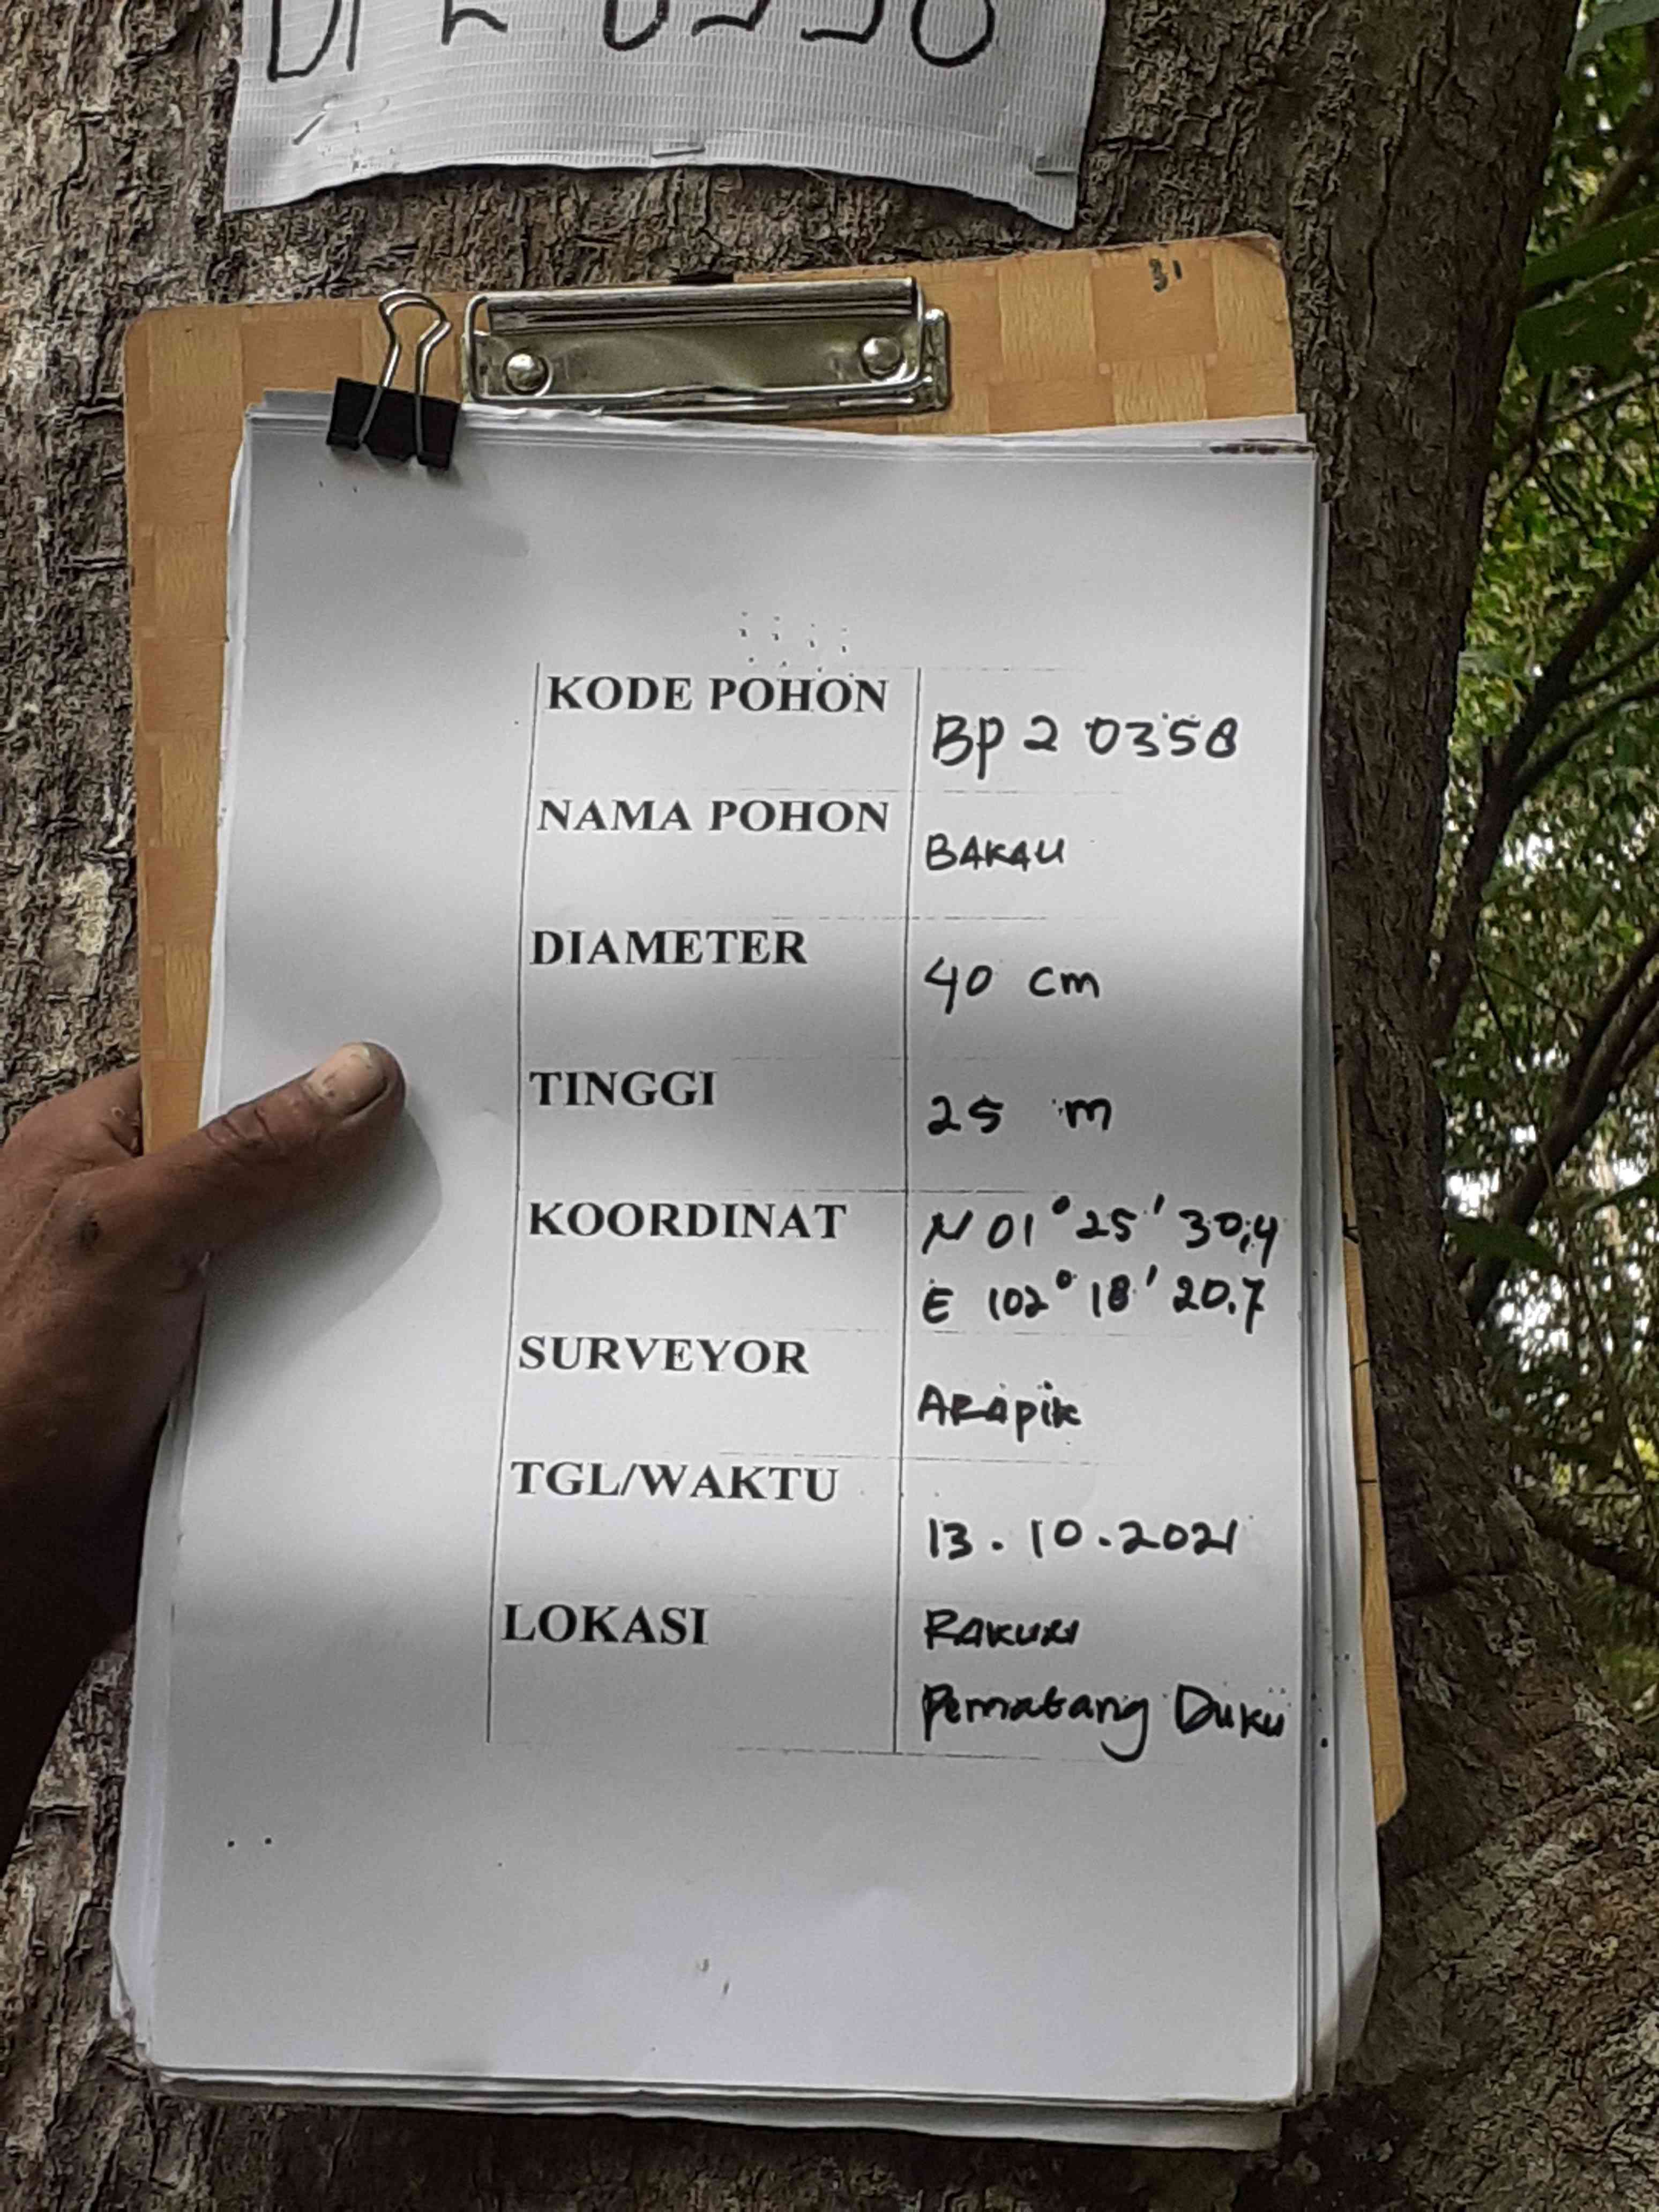 31
KODE POHON
BP 2 0358
NAMA POHON
BAKAU
DIAMETER
40 cm
TINGGI
25 m
KOORDINAT
N 01° 25' 30,4
E 102° 18' 20.7
SURVEYOR
ARApik
TGL/WAKTU
13.10.2021
LOKASI
Pematang Duku